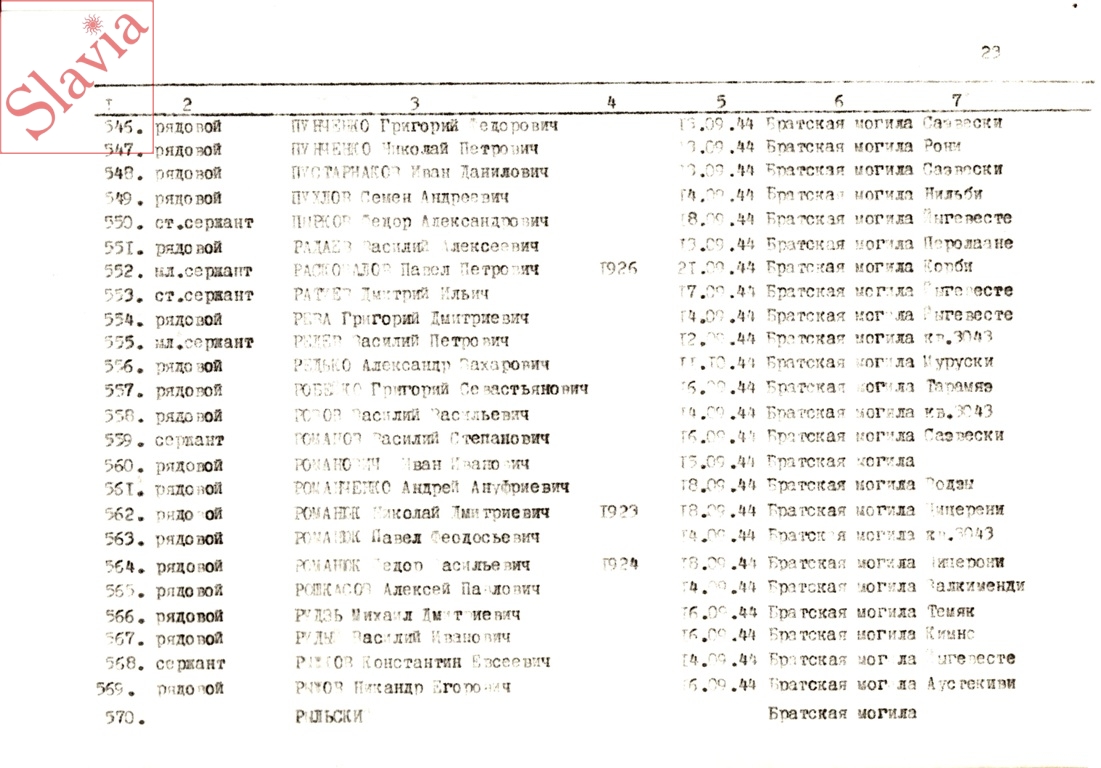 Slavia
23
I 2 3 4 5 6 7
546. рядовой ПУНЧЕНКО Григорий Федорович 13.09.44 Братская могила Саэвески
547. рядовой ПУНЧЕНКО Николай Петрович 13.09.44 Братская могила Рони
548. рядовой ПУСТАРНАКОВ Иван Данилович 13.09.44 Братская могила Саэвески
549. рядовой ПУХЛОВ Семен Андреевич 14.09.44 Братская могила Нильби
550. ст.сержант Федор Александрович 18.09.44 Братская могила Пыгевесте
551. рядовой РАДАЕВ Василий Алексеевич 13.09.44 Братская могила Перолаане
552. мл.сержант РАСКОВАЛОВ Павел Петрович 1926 21.09.44 Братская могила Корби
553. ст.сержант Дмитрий Ильич 17.09.44 Братская могила Пыгевесте
554. рядовой РЕВА Григорий Дмитриевич 14.09.44 Братская могила Пыгевесте
555. мл.сержант Василий Петрович 12.09.44 Братская могила кв.3043
556. рядовой РЕДЬКО Александр Захарович 11.10.44 Братская могила Муруски
557. рядовой Григорий Севастьянович 16.09.44 Братская могила Тарамяэ
558. рядовой Василий Васильевич 14.09.44 Братская могила кв.3043
559. сержант РОМАНОВ Василий Степанович 16.09.44 Братская могила Саэвески
560. рядовой РОМАНОВИЧ Иван Иванович 15.09.44 Братская могила
561. рядовой РОМАНЧЕНКО Андрей Ануфриевич 18.09.44 Братская могила
562. рядовой РОМАНЮК Николай Дмитриевич 1923 18.09.44 Братская могила Пицерени
563. рядовой РОМАНЮК Павел Феодосьевич 14.09.44 Братская могила кв.3043
564. рядовой РОМАНЮК Федор Васильевич 1924 18.09.44 Братская могила Пицерони
565. рядовой РОШКАСОВ Алексей Павлович 14.09.44 Братская могила Валкименди
566. рядовой РУДЗЬ Михаил Дмитриевич 16.09.44 Братская могила Темяк
567. рядовой Василий Иванович 16.09.44 Братская могила Кимно
568. сержант Константин Евсеевич 14.09.44 Братская могила Пыгевесте
569. рядовой РЫЖОВ Никандр Егорович 16.09.44 Братская могила Аустекиви
570. РЫЛЬСКИЙ Братская могила